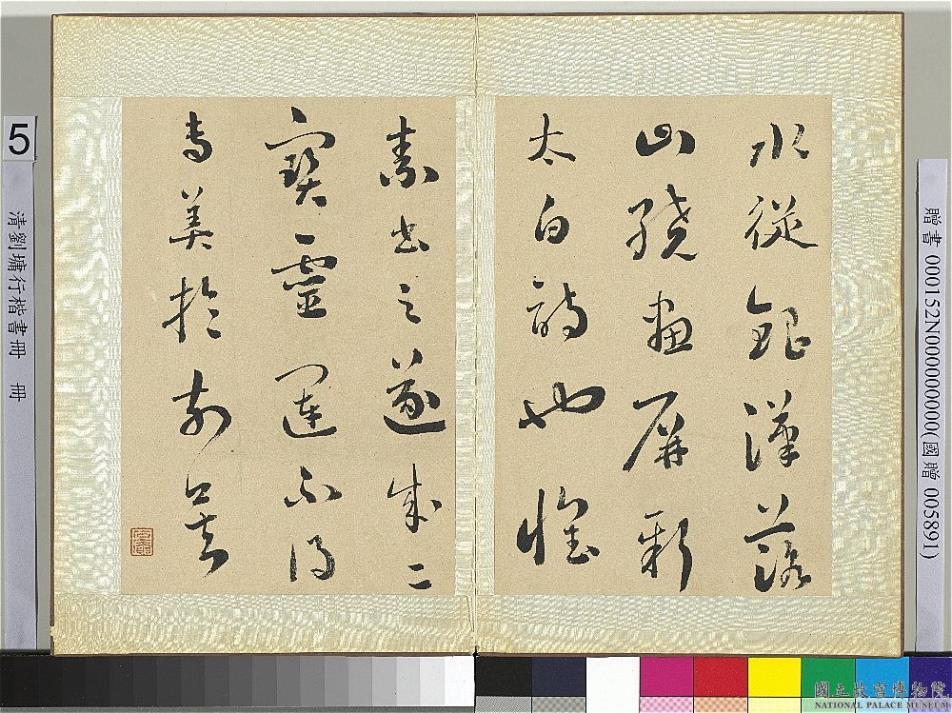 水從銀漢落
山繞畫屏新
太白詩也懷
素書之遂成二
寶靈運不得
專美於前矣
5
清劉墉行楷書冊 冊
贈書 000152N000000000(國贈 005891)
國立故宮博物院
NATIONAL PALACE MUSEUM